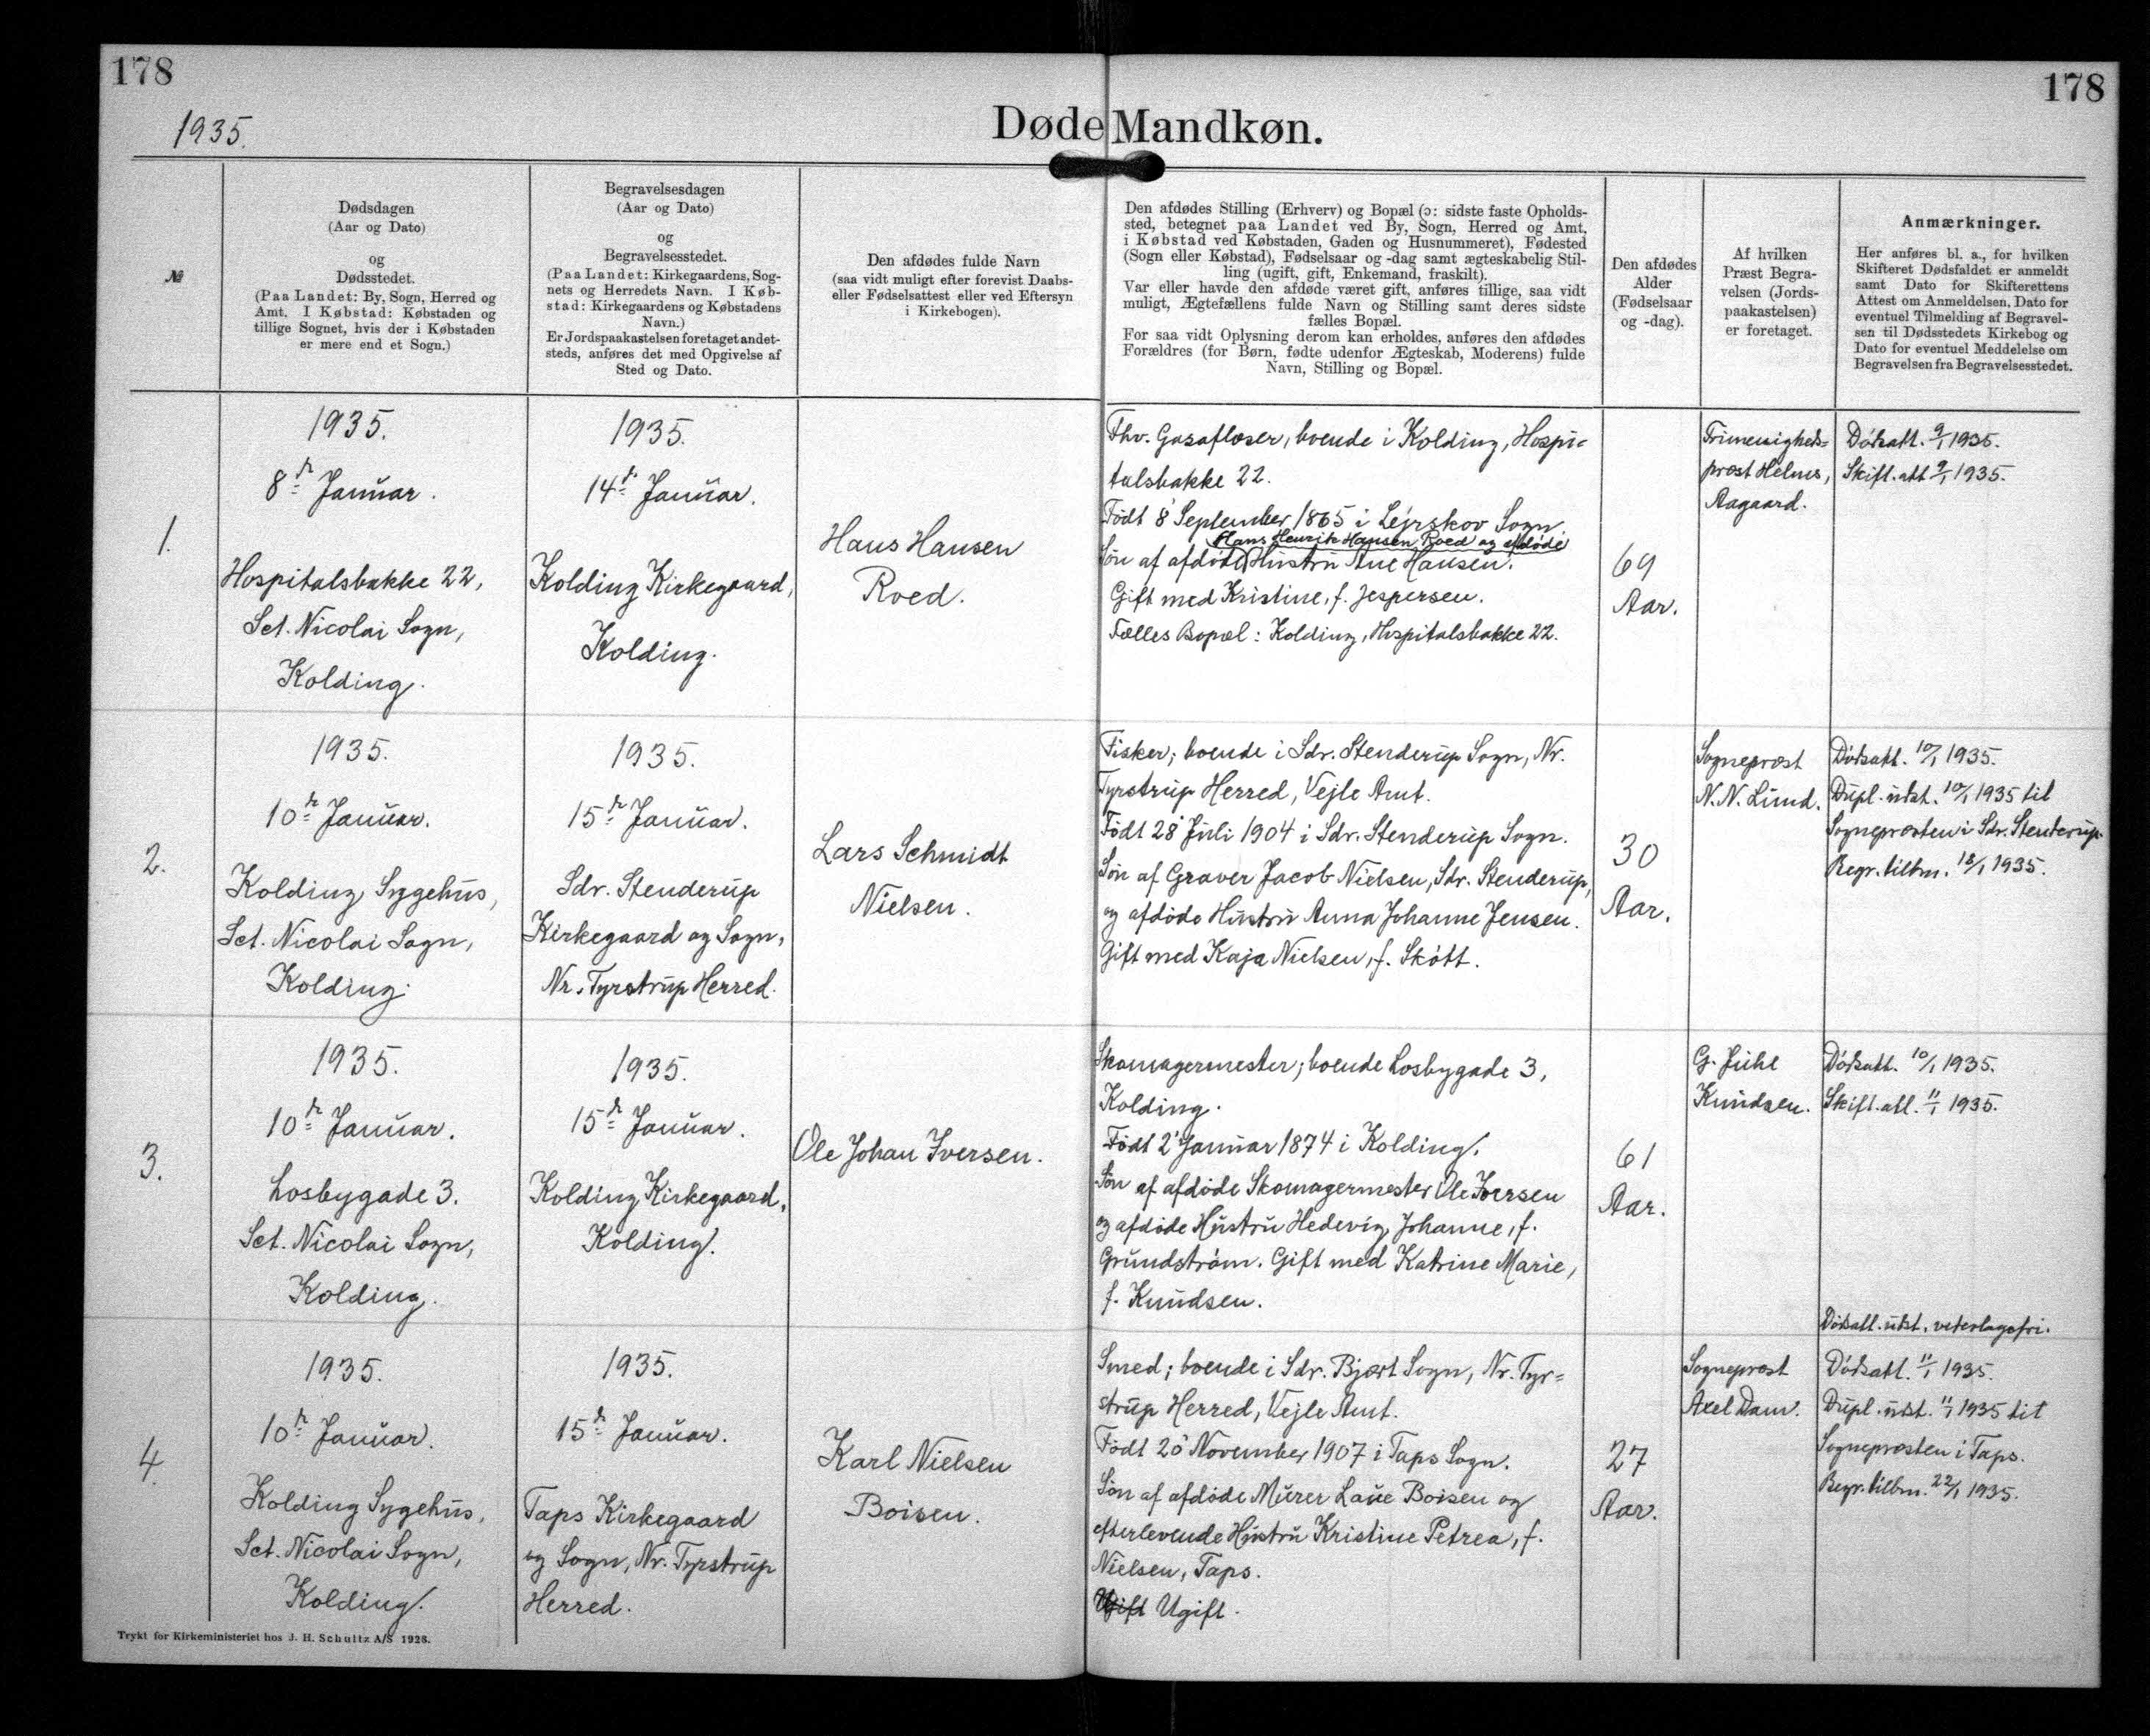 178
178
1935.
Døde Mandkøn.
№
Dødsdagen
(Aar og Dato)
og
Dødsstedet.
(Paa Landet: By, Sogn, Herred og
Amt. I Købstad: Købstaden og
tillige Sognet, hvis der i Købstaden
er mere end et Sogn.)
Begravelsesdagen
(Aar og Dato)
og
Begravelsesstedet.
(Paa Landet: Kirkegaardens, Sog-
nets og Herredets Navn. I Køb-
stad: Kirkegaardens og Købstadens
Navn.)
Er Jordspaakastelsen foretaget andet-
steds, anføres det med Opgivelse af
Sted og Dato.
Den afdødes fulde Navn
(saa vidt muligt efter forevist Daabs-
eller Fødselsattest eller ved Eftersyn
i Kirkebogen).
Den afdødes Stilling (Erhverv) og Bopæl (ɔ: sidste faste Opholds-
sted, betegnet paa Landet ved By, Sogn, Herred og Amt,
i Købstad ved Købstaden, Gaden og Husnummeret), Fødested
(Sogn eller Købstad), Fødselsaar og -dag samt ægteskabelig Stil-
ling (ugift, gift, Enkemand, fraskilt).
Var eller havde den afdøde været gift, anføres tillige, saa vidt
muligt, Ægtefællens fulde Navn og Stilling samt deres sidste
fælles Bopæl.
For saa vidt Oplysning derom kan erholdes, anføres den afdødes
Forældres (for Børn, fødte udenfor Ægteskab, Moderens) fulde
Navn, Stilling og Bopæl.
Den afdødes
Alder
(Fødselsaar
og -dag).
Af hvilken
Præst Begra-
velsen (Jords-
paakastelsen)
er foretaget.
Anmærkninger.
Her anføres bl. a., for hvilken
Skifteret Dødsfaldet er anmeldt
samt Dato for Skifterettens
Attest om Anmeldelsen, Dato for
eventuel Tilmelding af Begravel-
sen til Dødsstedets Kirkebog og
Dato for eventuel Meddelelse om
Begravelsen fra Begravelsesstedet.
1.
1935.
8de Januar.
Hospitalsbakke 22,
Sct. Nicolai Sogn,
Kolding.
1935.
14de Januar.
Kolding Kirkegaard,
Kolding.
Hans Hansen
Roed.
Fhv. Gasaflæser, boende i Kolding, Hospi=
talsbakke 22.
Født 8' September 1865 i Lejrskov Sogn.
Hans Henrik Hansen Roed og afdøde
Søn af afdøde Hustru Ane Hansen.
Gift med Kristine, f. Jespersen.
Fælles Bopæl: Kolding, Hospitalsbakke 22.
69
Aar.
Frimenigheds=
præst Helms,
Aagaard.
Dødsatt. 9/1 1935.
Skift. att 9/1 1935.
2.
1935.
10de Januar.
Kolding Sygehus,
Sct. Nicolai Sogn,
Kolding.
1935.
15de Januar.
Sdr. Stenderup
Kirkegaard og Sogn,
Nr. Tyrstrup Herred.
Lars Schmidt
Nielsen.
Fisker; boende i Sdr. Stenderup Sogn, Nr.
Tyrstrup Herred, Vejle Amt.
Født 28' Juli 1904 i Sdr. Stenderup Sogn.
Søn af Graver Jacob Nielsen, Sdr. Stenderup,
og afdøde Hustru Anna Johanne Jensen.
Gift med Kaja Nielsen, f. Skøtt.
30
Aar.
Sognepræst
N. N. Lund.
Dødsatt. 10/1 1935.
Dupl. udst. 10/1 1935 til
Sognepræsten i Sdr. Stenderup.
Begr. tilbm. 18/1 1935.
3.
1935.
10de Januar.
Losbygade 3.
Sct. Nicolai Sogn,
Kolding.
1935.
15de Januar.
Kolding Kirkegaard,
Kolding.
Ole Johan Iversen.
Skomagermester; boende Losbygade 3,
Kolding.
Født 2' Januar 1874 i Kolding.
Søn af afdøde Skomagermester Ole Iversen
og afdøde Hustru Hedevig Johanne, f.
Grundstrøm. Gift med Katrine Marie,
f. Knudsen.
61
Aar.
G. Juhl
Knudsen.
Dødsatt. 10/1 1935.
Skift. att. 11/1 1935.
4.
1935.
10de Januar.
Kolding Sygehus,
Sct. Nicolai Sogn,
Kolding.
1935.
15de Januar.
Taps Kirkegaard
og Sogn, Nr. Tyrstrup
Herred.
Karl Nielsen
Boisen.
Smed; boende i Sdr. Bjært Sogn, Nr. Tyr=
strup Herred, Vejle Amt.
Født 20' November 1907 i Taps Sogn.
Søn af afdøde Murer Laue Boisen og
efterlevende Hustru Kristine Petrea, f.
Nielsen, Taps.
Ugift.
27
Aar.
Sognepræst
Axel Dam.
Dødsatt. udst. vederlagsfri.
Dødsatt. 11/1 1935.
Dupl. udst. 11/1 1935 til
Sognepræsten i Taps.
Begr. tilbm. 22/1 1935.
Trykt for Kirkeministeriet hos J. H. Schultz A/S 1928.